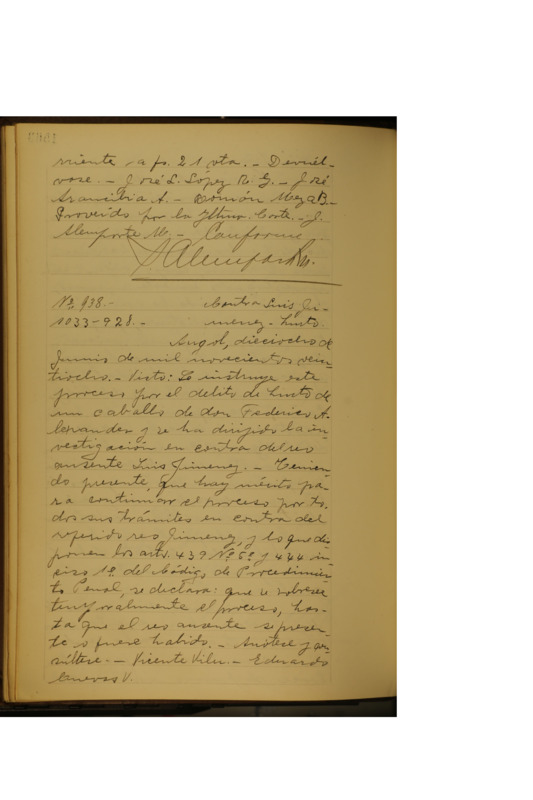 miente a fs. 21 vta. - Devuél-
vase. - José L. López R. G. - José
Arancibia A. - Román Meza B.-
Proveído por la Iltma. Corte. - J.
Alemparte M. - Conforme.
J Alemparte M.
No. 938.-
Contra Luis Ji-
1033-928.-
menez - hurto.
Angol, dieciocho de
Junio de mil novecientos vein-
tiocho. - Visto: Se instruye este
proceso por el delito de hurto de
un caballo de don Federico A.
y se ha dirijido la in-
vestigación en contra del reo
ausente Luis Jimenez. - Tenien-
do presente, que hay mérito pa-
ra continuar el proceso por to-
dos sus trámites en contra del
referido reo Jimenez, y lo que dis-
ponen los arts. 439 No. 6o. y 444 in-
ciso 1o. del Código de Procedimien-
to Penal, se declara: que se sobresee
temporalmente el proceso, has-
ta que el reo ausente se presen-
te o fuere habido. - Anótese y con-
súltese. - Vicente Vilu. - Eduardo
Cuevas V.